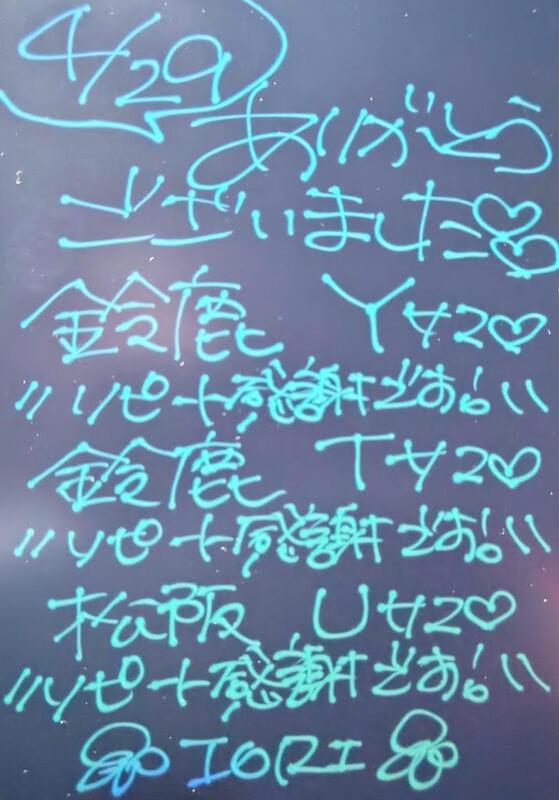 4/29
ありがとう
ございました♡♡
鈴鹿 Yサン♡
〃リピート感謝です!〃
鈴鹿 Tサン♡
〃リピート感謝です!〃
松阪 Uサン♡
〃リピート感謝です!〃
IORI